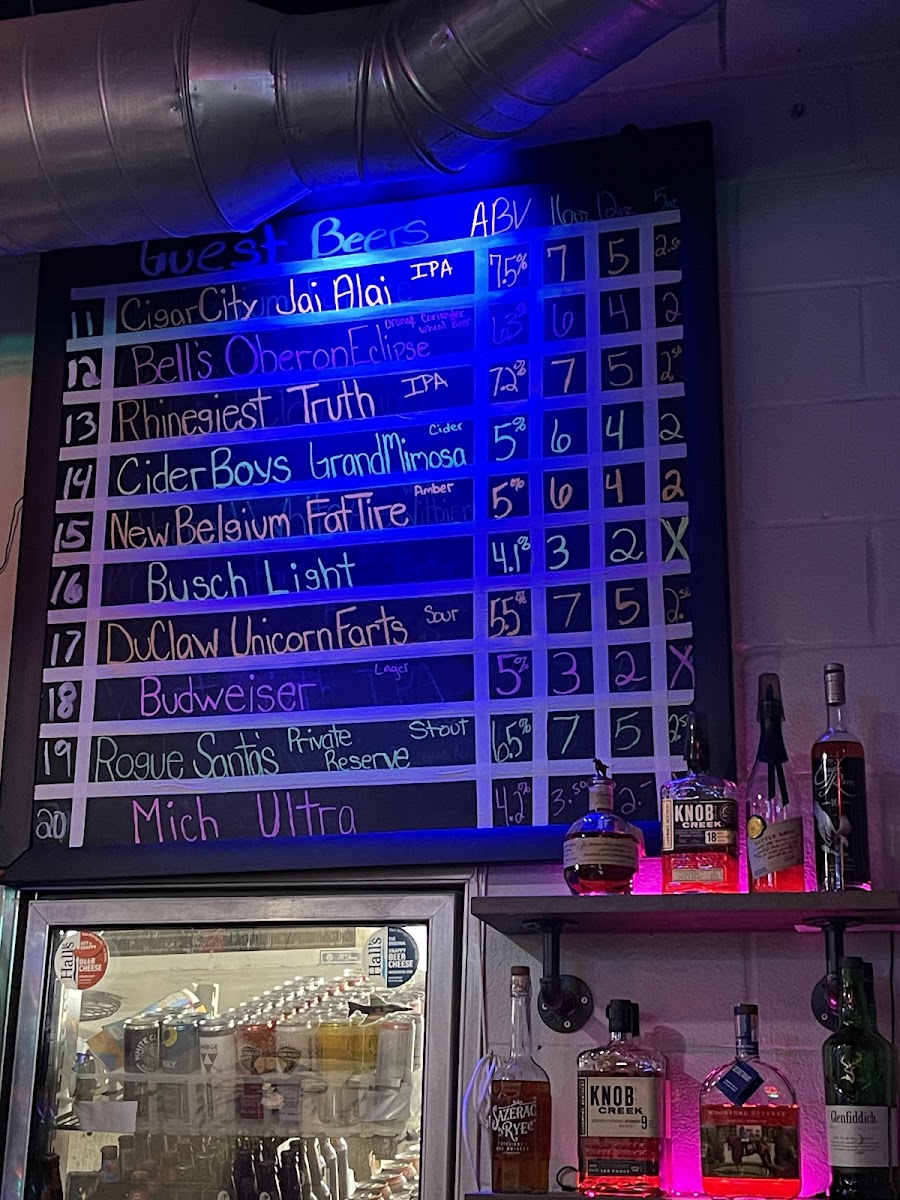 Guest Beers ABV 12oz 5oz
11 CigarCity Jai Alai IPA 7.5% 7 5 2.50
12 Bell's OberonEclipse Orange Coriander Wheat Beer 6.3% 6 4 2
13 Rhinegiest Truth IPA 7.2% 7 5 2.50
14 CiderBoys GrandMimosa Cider 5% 6 4 2
15 New Belgium FatTire Amber 5% 6 4 2
16 Busch Light 4.1% 3 2 X
17 DuClaw UnicornFarts Sour 5.5% 7 5 2.50
18 Budweiser Lager 5% 3 2 X
19 Rogue Santa's Private Reserve Stout 6.5% 7 5 2.50
20 Mich Ultra 4.2% 3.50 2.-
KNOB CREEK
18
Hall's
BEER CHEESE
Hall's
BEER CHEESE
SAZERAC RYE
KNOB CREEK
9
WOODFORD RESERVE
Glenfiddich